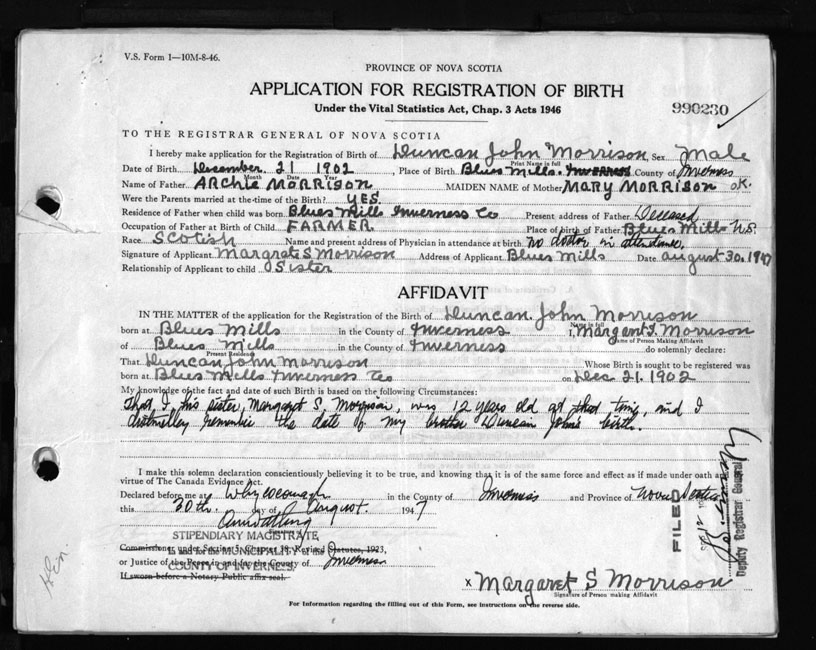 V.S. Form 1—10M-8-46.
PROVINCE OF NOVA SCOTIA
APPLICATION FOR REGISTRATION OF BIRTH
Under the Vital Statistics Act, Chap. 3 Acts 1946
990230
TO THE REGISTRAR GENERAL OF NOVA SCOTIA
I hereby make application for the Registration of Birth of Duncan John Morrison, Sex Male
Print Name in full
Date of Birth December 21 1902, Place of Birth Blues Mills. Inverness County of Inverness
Month Date Year
Name of Father ARCHIE MORRISON MAIDEN NAME of Mother MARY MORRISON OK.
Were the Parents married at the time of the Birth? YES.
Residence of Father when child was born Blues Mills Inverness Co Present address of Father Deceased
Occupation of Father at Birth of Child FARMER Place of birth of Father Blues Mills N.S.
Race Scotish Name and present address of Physician in attendance at birth no doctor in attendance,
Signature of Applicant Margrate S Morrison Address of Applicant Blues Mills Date August 30, 1947
Relationship of Applicant to child Sister
AFFIDAVIT
IN THE MATTER of the application for the Registration of the Birth of Duncan John Morrison
Name in full
born at Blues Mills in the County of Inverness I, Margaret S. Morrison
Name of Person Making Affidavit
of Blues Mills in the County of Inverness do solemnly declare:
Present Residence
That Duncan John Morrison Whose Birth is sought to be registered was
born at Blues Mills Inverness Co on Dec 21. 1902
My knowledge of the fact and date of such Birth is based on the following Circumstances:
That, I, his sister, Margaret S. Morrison, was 12 years old at that time, and I
distinctley remember the date of my brother Duncan John's birth.
I make this solemn declaration conscientiously believing it to be true, and knowing that it is of the same force and effect as if made under oath and
virtue of The Canada Evidence Act.
Declared before me at Whycocomagh in the County of Inverness and Province of Nova Scotia
this 30th. day of August. 1947
STIPENDIARY MAGISTRATE,
Commissioner under Section 3, Chapter 38, Revised Statutes, 1923,
in and for the MUNICIPALITY of the
or Justice of the Peace in and for the County of Inverness
COUNTY OF INVERNESS
If sworn before a Notary Public affix seal.
FILED
Deputy Registrar General
x Margaret S Morrison
Signature of Person making Affidavit
For Information regarding the filling out of this Form, see instructions on the reverse side.